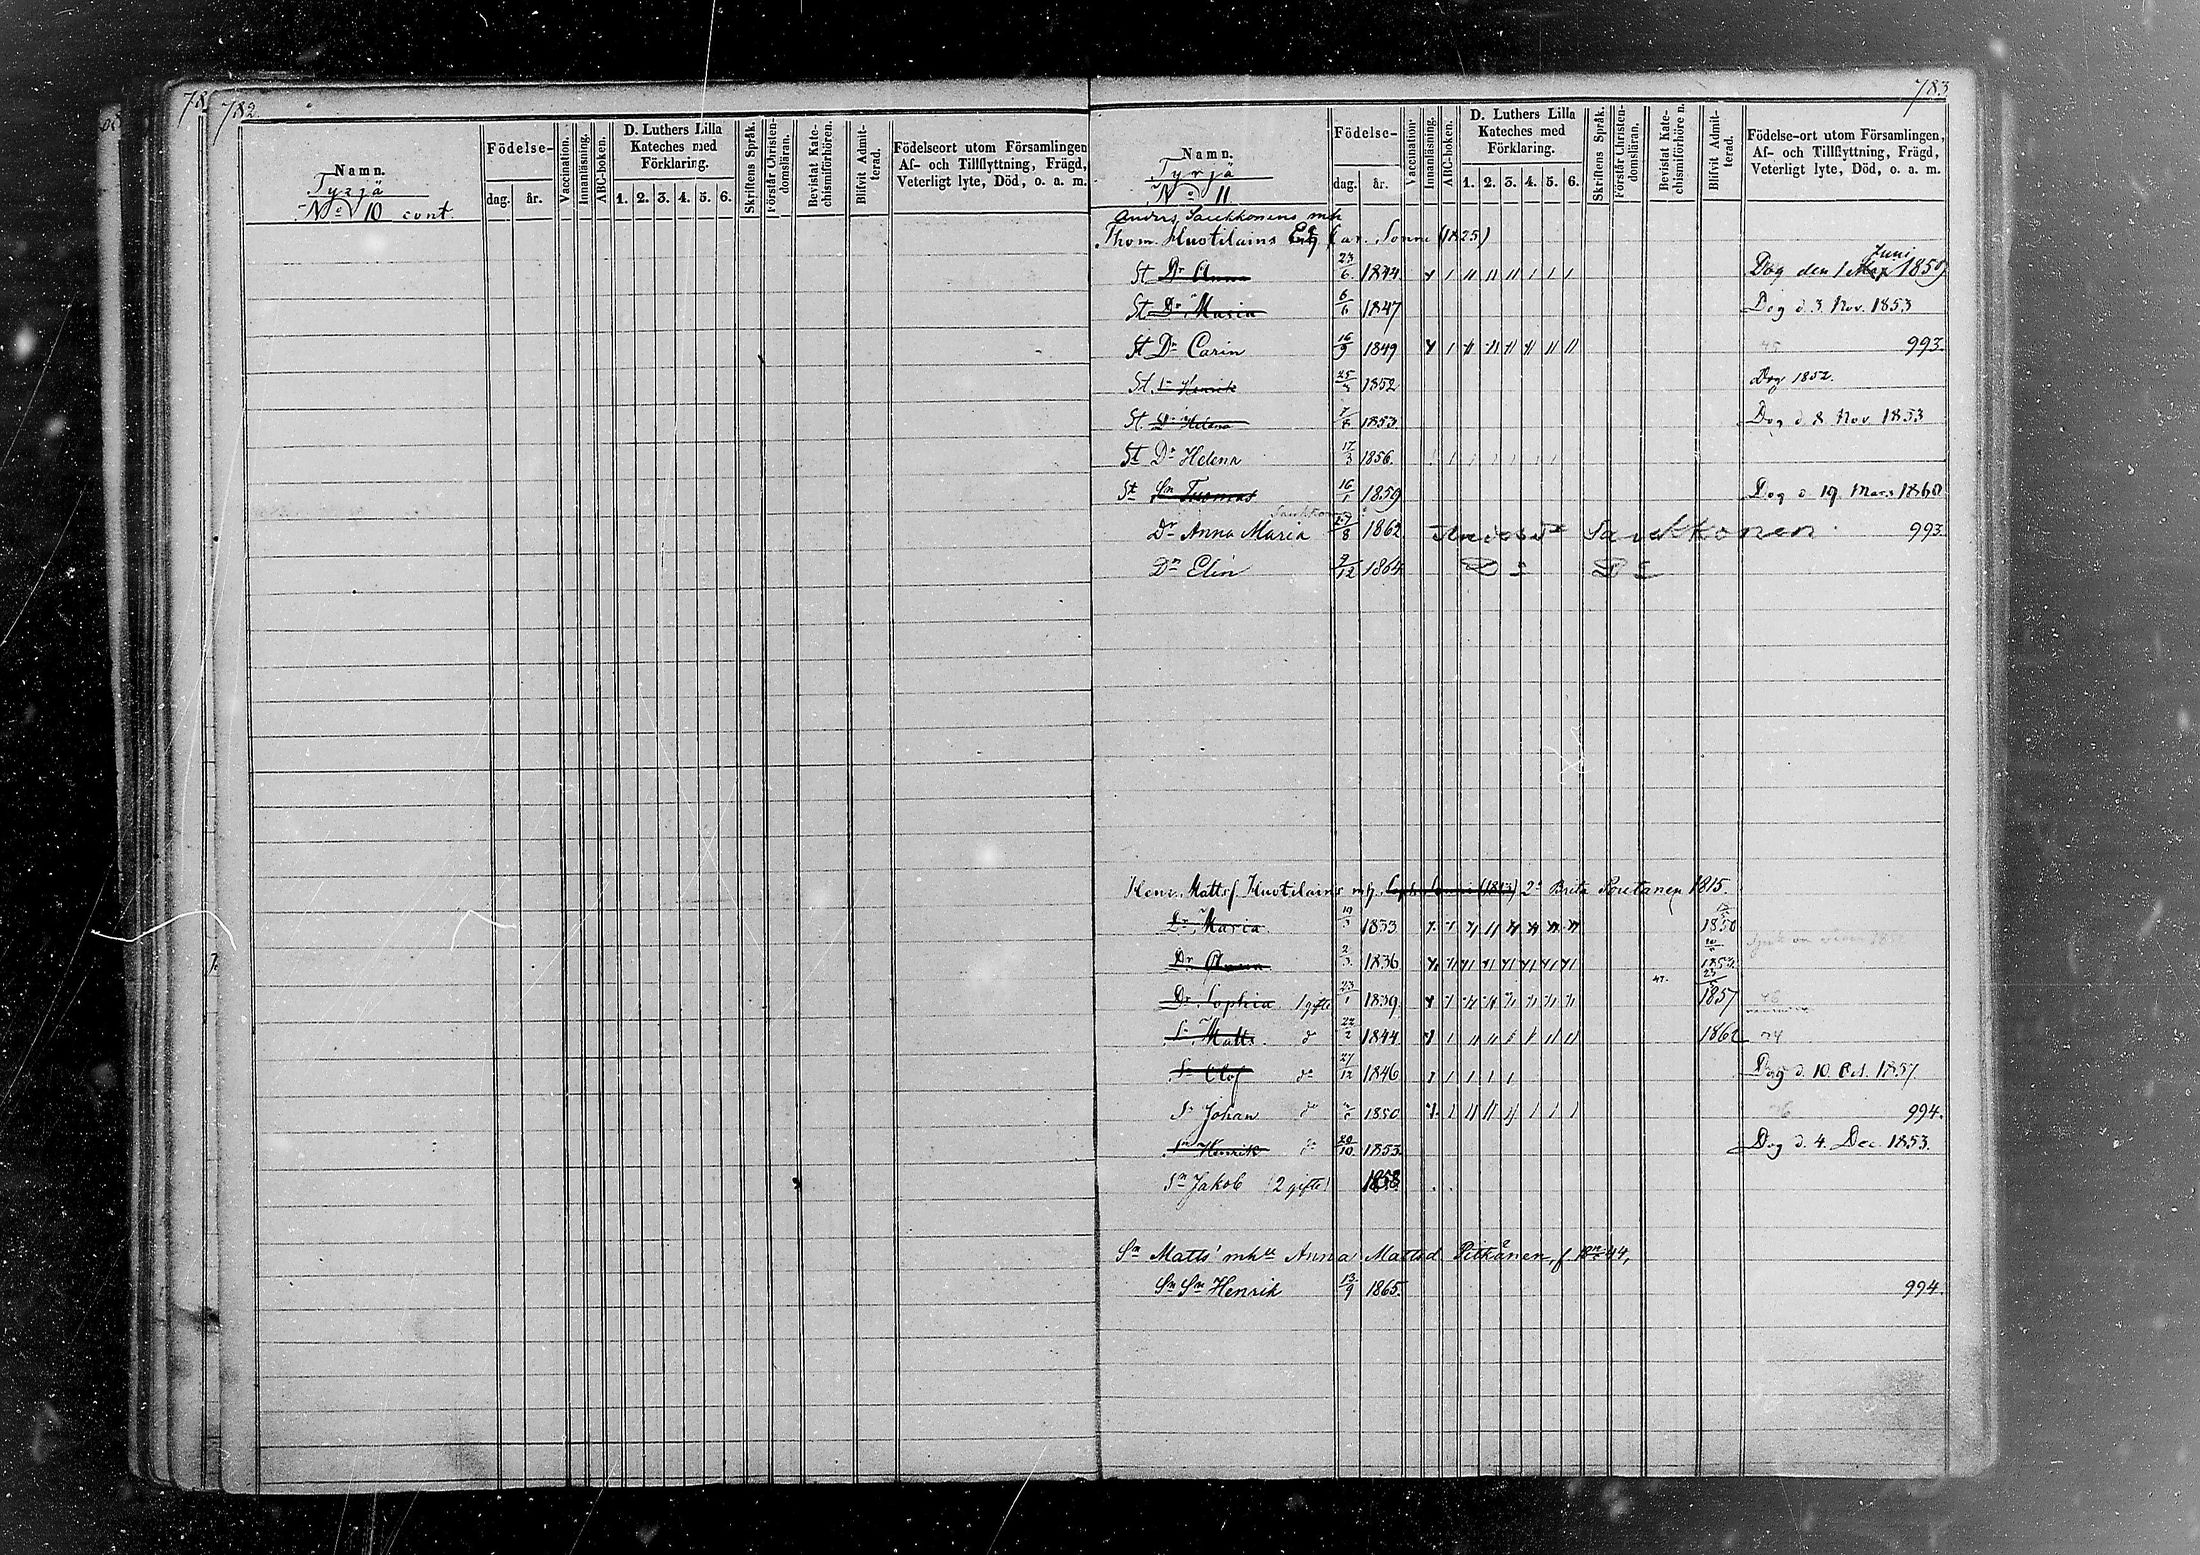 782
Namn.
Tyrjä
No 10 cont.
Födelse-
dag. år.
Vaccination.
Innanläsning.
ABC-boken.
D. Luthers Lilla
Kateches med
Förklaring.
1. 2. 3. 4. 5. 6.
Skriftens Språk.
Förstår Christen-
domsläran.
Bevistat Kate-
chismiförhören.
Blifvit Admit-
terad.
Födelseort utom Församlingen
Af- och Tillflyttning, Frägd,
Veterligt lyte, Död, o. a. m.
783
Namn.
Tyrjä
No 11
Födelse-
dag. år.
Vaccination.
Innanläsning.
ABC-boken.
D. Luthers Lilla
Kateches med
Förklaring.
1. 2. 3. 4. 5. 6.
Skriftens Språk.
Förstår Christen-
domsläran.
Bevistat Kate-
chismiförhören.
Blifvit Admit-
terad.
Födelse-ort utom Församlingen,
Af- och Tillflyttning, Frägd,
Veterligt lyte, Död, o. a. m.
Anders Saukkonens mh
Thom. Huotilains Car. Sonni (1825)
St Dr Anna 23/6 1844 Dog den 1 Juni
St Dr Maria 6/6 1847 Dog d. 3. Nov. 1853
St Dr Carin 16/9 1849 993.
St Sn Henrik 1852 Dog 1852.
St Dr Helena 1853 Dog d. 8 Nov 1853
St Dr Helena 17/3 1856.
St Sn Tuomas 16/1 1859 Dog d. 19. Mars 1860
Dr Anna Maria 27/8 1862 Saukkonen 993
Dr Elin 9/12 1864 Do Do
Henr. Mattsf. Huotilains mh. 2o Brita Poutanen 1815.
Dr Maria 19/3 1833 1850
Dr Anna 2/3 1836 1853
Dr Sophia 1 gifte 23/1 1839 1857
Sn Matts do 22/2 1844 1862
Sn Olof do 27/12 1846 Dog d. 10. Oct. 1857
Sn Johan do 1850 994.
Sn Henrik do 20/10 1853 Dog d. 4. Dec. 1853.
Sn Jakob (2 gifte) 1858
Sn Matts' mh Anna Mattsd Pitkänen, f. 44,
Sn Sn Henrik 13/9 1865. 994.